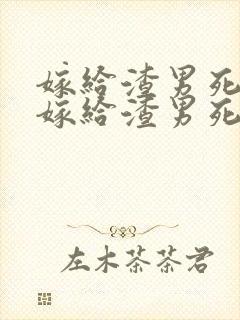 嫁给渣男死
嫁给渣男死
左木茶茶君